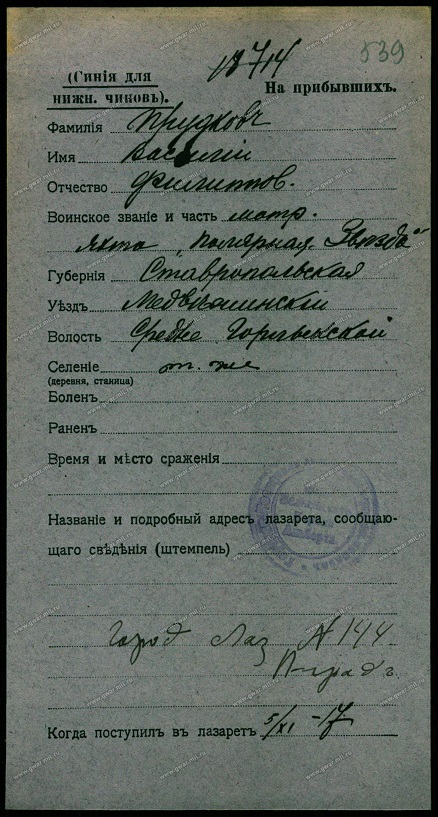 18714 539
(Синія для
нижн. чиновъ). На прибывшихъ.
Фамилія Прудковъ
Имя Василій
Отчество Филиппов.
Воинское званіе и часть матр.
яхта „Полярная Звѣзда“
Губернія Ставропольская
Уѣздъ Медвѣжинскій
Волость Средне Горлыкской
Селеніе т. же
(деревня, станица)
Боленъ
Раненъ
Время и мѣсто сраженія
Названіе и подробный адресъ лазарета, сообщаю-
щаго свѣдѣнія (штемпель)
Город Лаз N 144
П-градъ
Когда поступилъ въ лазаретъ 5/XI -17